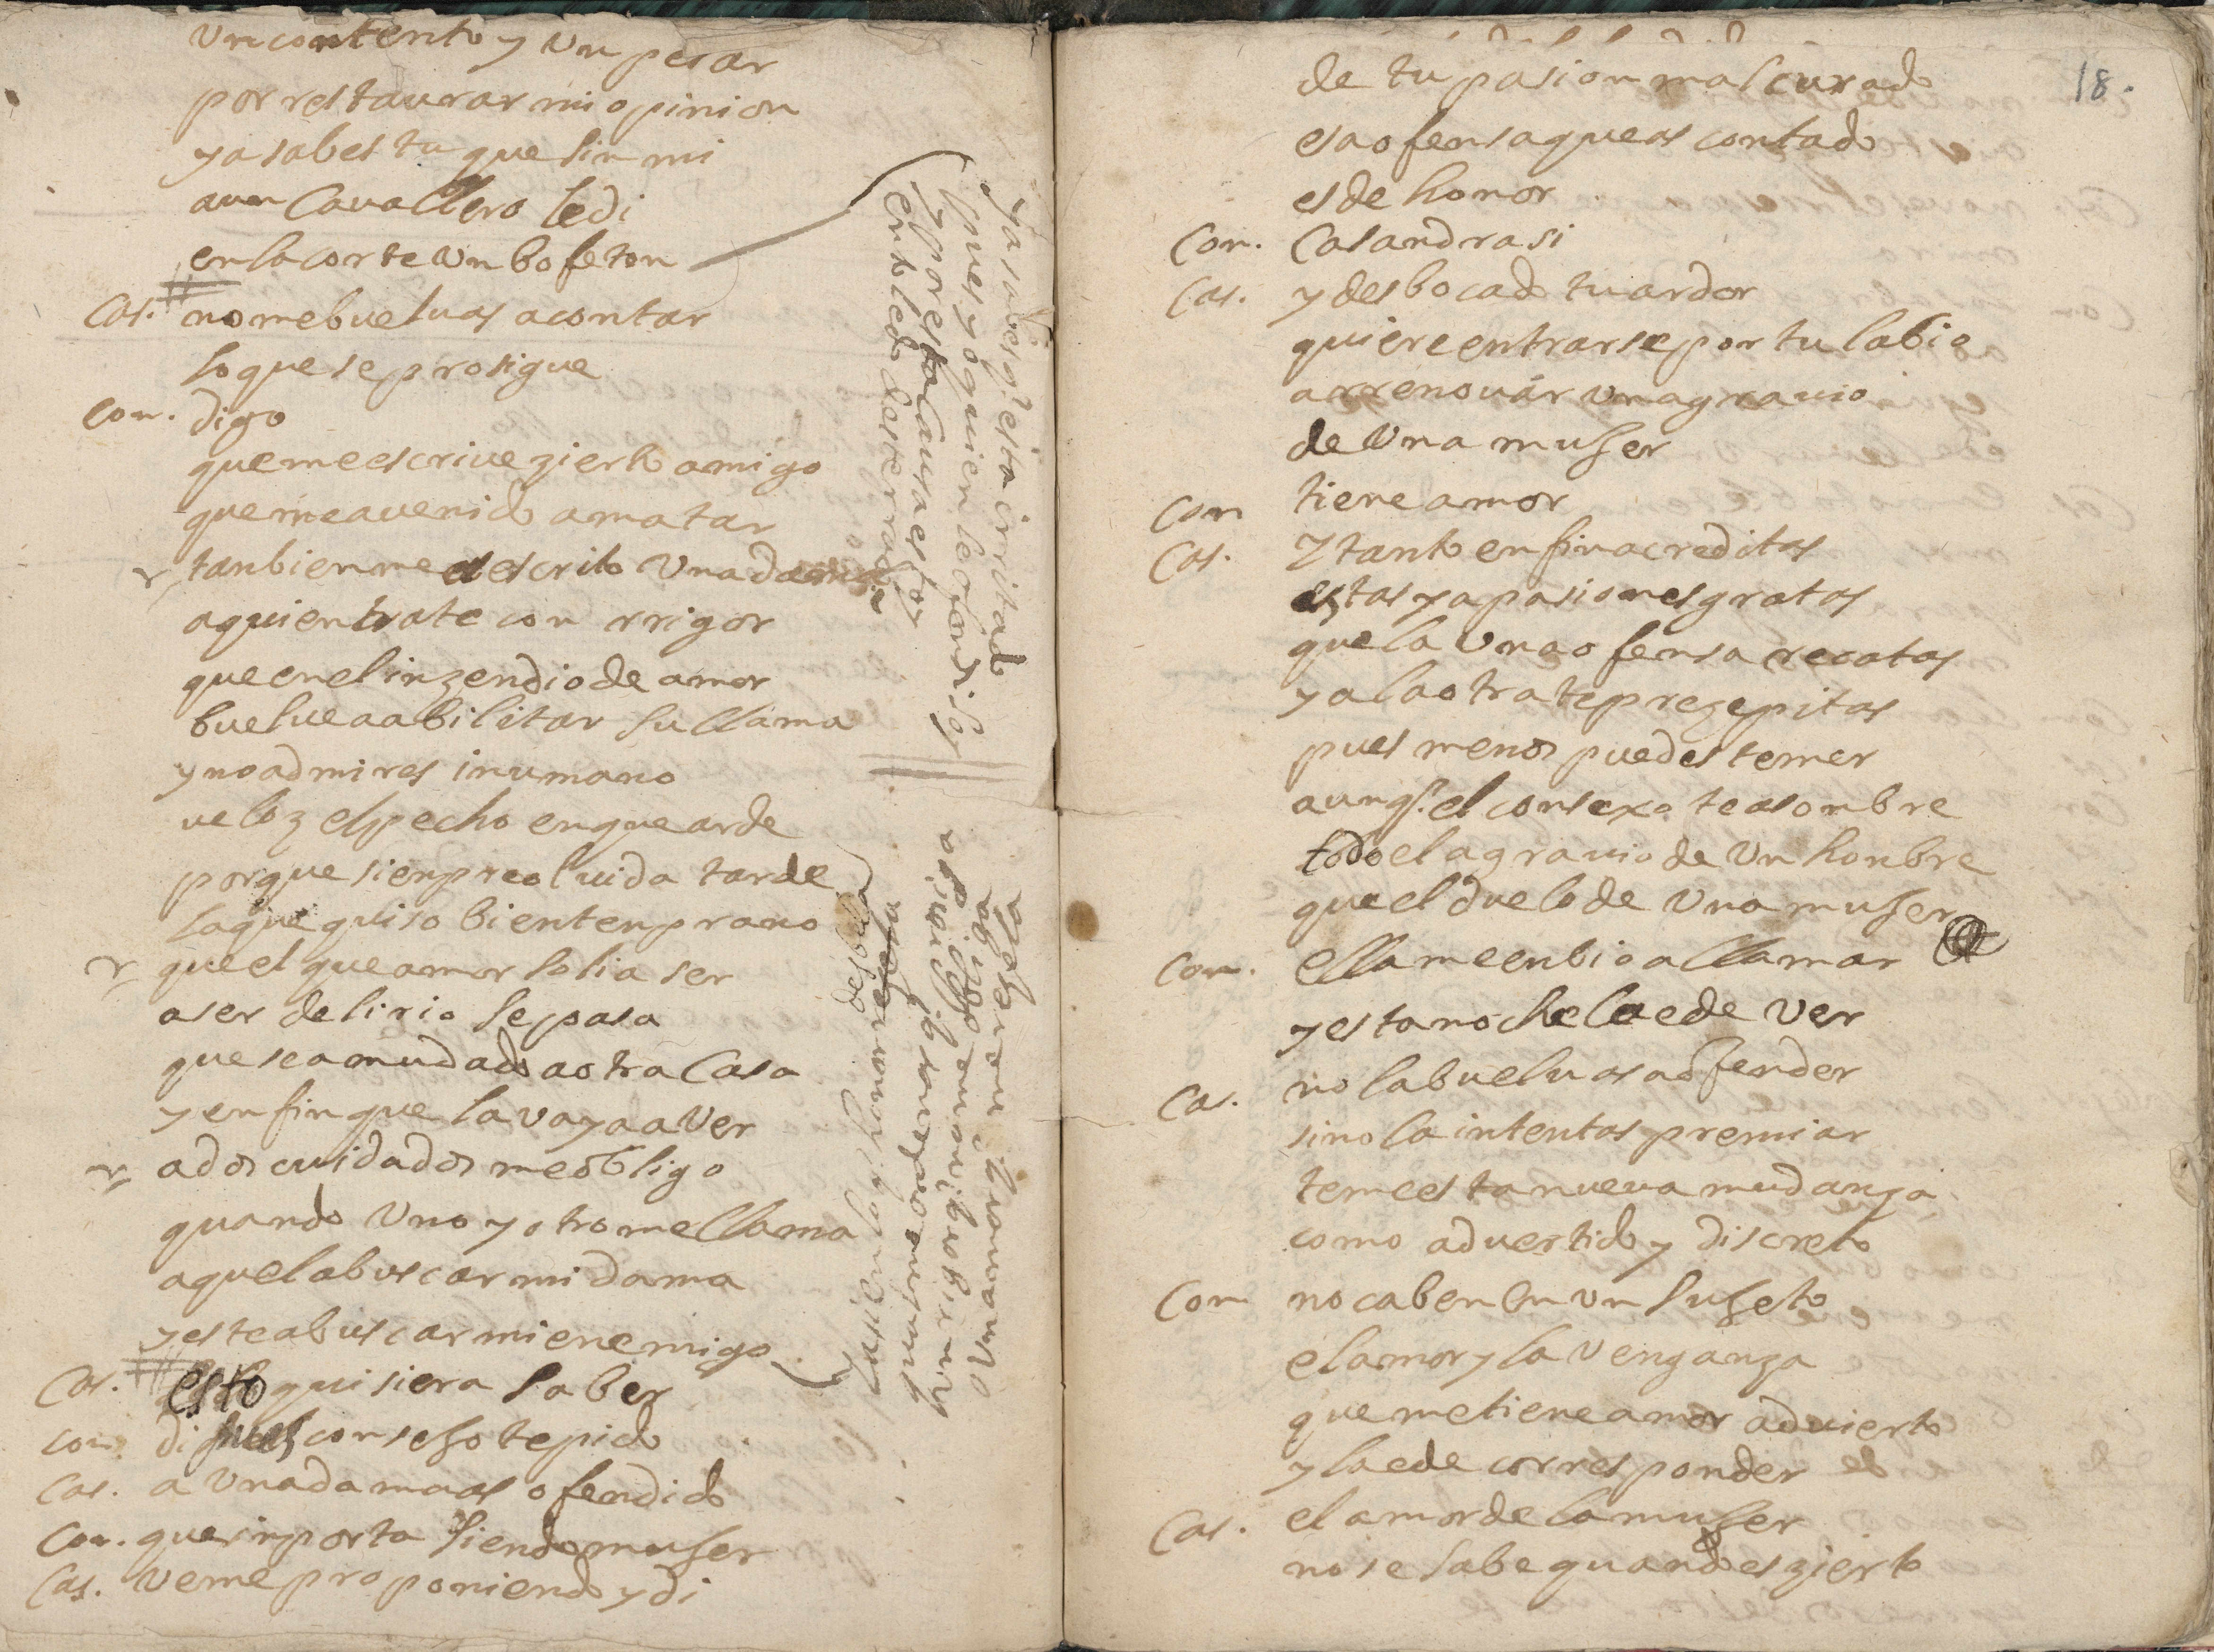 Un contento y Un pesar
por restaurar mi opinion
ya sabes tu que sin mi
aun Cavallero le di
en la corte Un bofeton
Cas. no me bueluas a contar
lo que se prosigue
Con. digo
que me escriue zierto amigo
que me a uenido a matar
tanbien me a escrito Una dama
a quien trate con rrigor
que en el inzendio de amor
buelue a abilitar su llama
y no admires inumano
ueloz el pecho en que arde
porque sienpre oluida tarde
la que quiso bien tenprano
que el que amor solia ser
a ser delirio se pasa
que se a mudado a otra Casa
y en fin que la vaya a Ver
a dos cuidados me obligo
quando Uno y otro me llama
aquel a buscar mi dama
y este a buscar mi enemigo
Cas. esto quisiera saber
con. di pues consejo te pido
Cas. a Una dama as ofendido
Con. que inporta siendo mujer
Cas. Veme proponiendo y di
ya sabes q.e esta irritado
pues yo quien le ofendi soy
y por esta Causa estoy
en toledo desterrado
18.
de tu pasion mal curado
esa ofensa que as contado
es de honor
Con. Casandra si
Cas. y desbocado tu ardor
quiere entrarse por tu labio
a rrenouar Un agrauio
de Una mujer
Con tiene amor
Cas. Y tanto en fin acreditas
estas ya pasiones gratas
que la Una ofensa recatas
y a la otra te prezepitas
pues menos puedes temer
aunq.e el consexo te asombre
todo el agrauio de Un honbre
que el duelo de Una mujer
Con. ella me enbio a llamar
y esta noche la e de Ver
Cas. no la bueluas a ofender
si no la intentas premiar
teme esta nueua mudanza
como aduertido y discreto
Con no caben en un sujeto
el amor y la Venganza
que me tiene amor aduierto
y la e de corresponder
Cas. el amor de la mujer
no se sabe quando es zierto